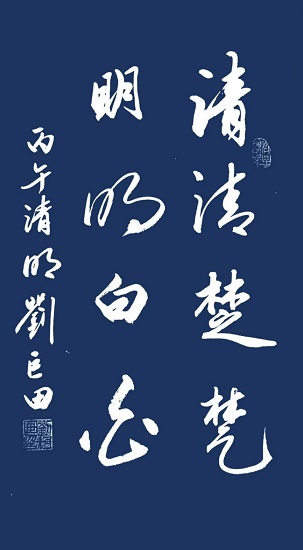 清清楚楚
明明白白
丙午清明劉巨田